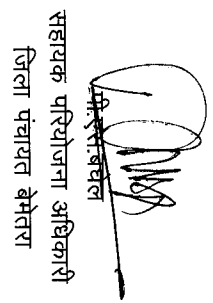 पी.एस.बघेल
सहायक परियोजना अधिकारी
जिला पंचायत बेमेतरा